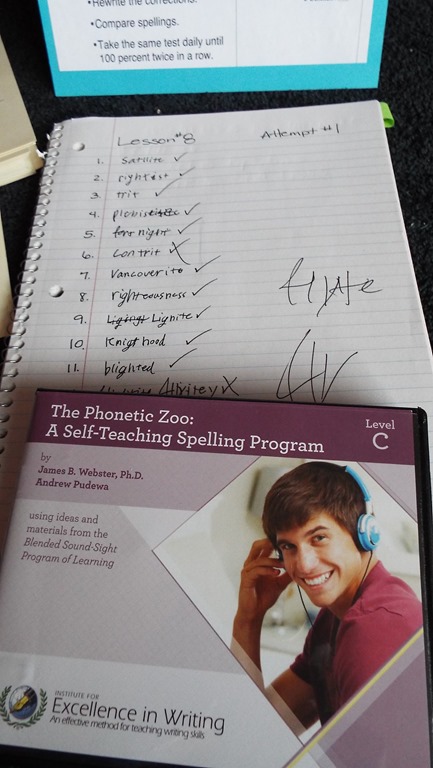 •Rewrite the corrections.
•Compare spellings.
•Take the same test daily until
100 percent twice in a row.
Lesson #8 Attempt #1
1. Satilite ✓
2. rightist ✓
3. trit ✓
4. ✓
5. night ✓
6. Contrit X
7. Vancoverite ✓
8. righteousness ✓
9. Lignite ✓
10. Knighthood ✓
11. blighted ✓
X
The Phonetic Zoo:
A Self-Teaching Spelling Program
Level
C
by
James B. Webster, Ph.D.
Andrew Pudewa
using ideas and
materials from the
Blended Sound-Sight
Program of Learning
INSTITUTE FOR
Excellence in Writing
An effective method for teaching writing skills